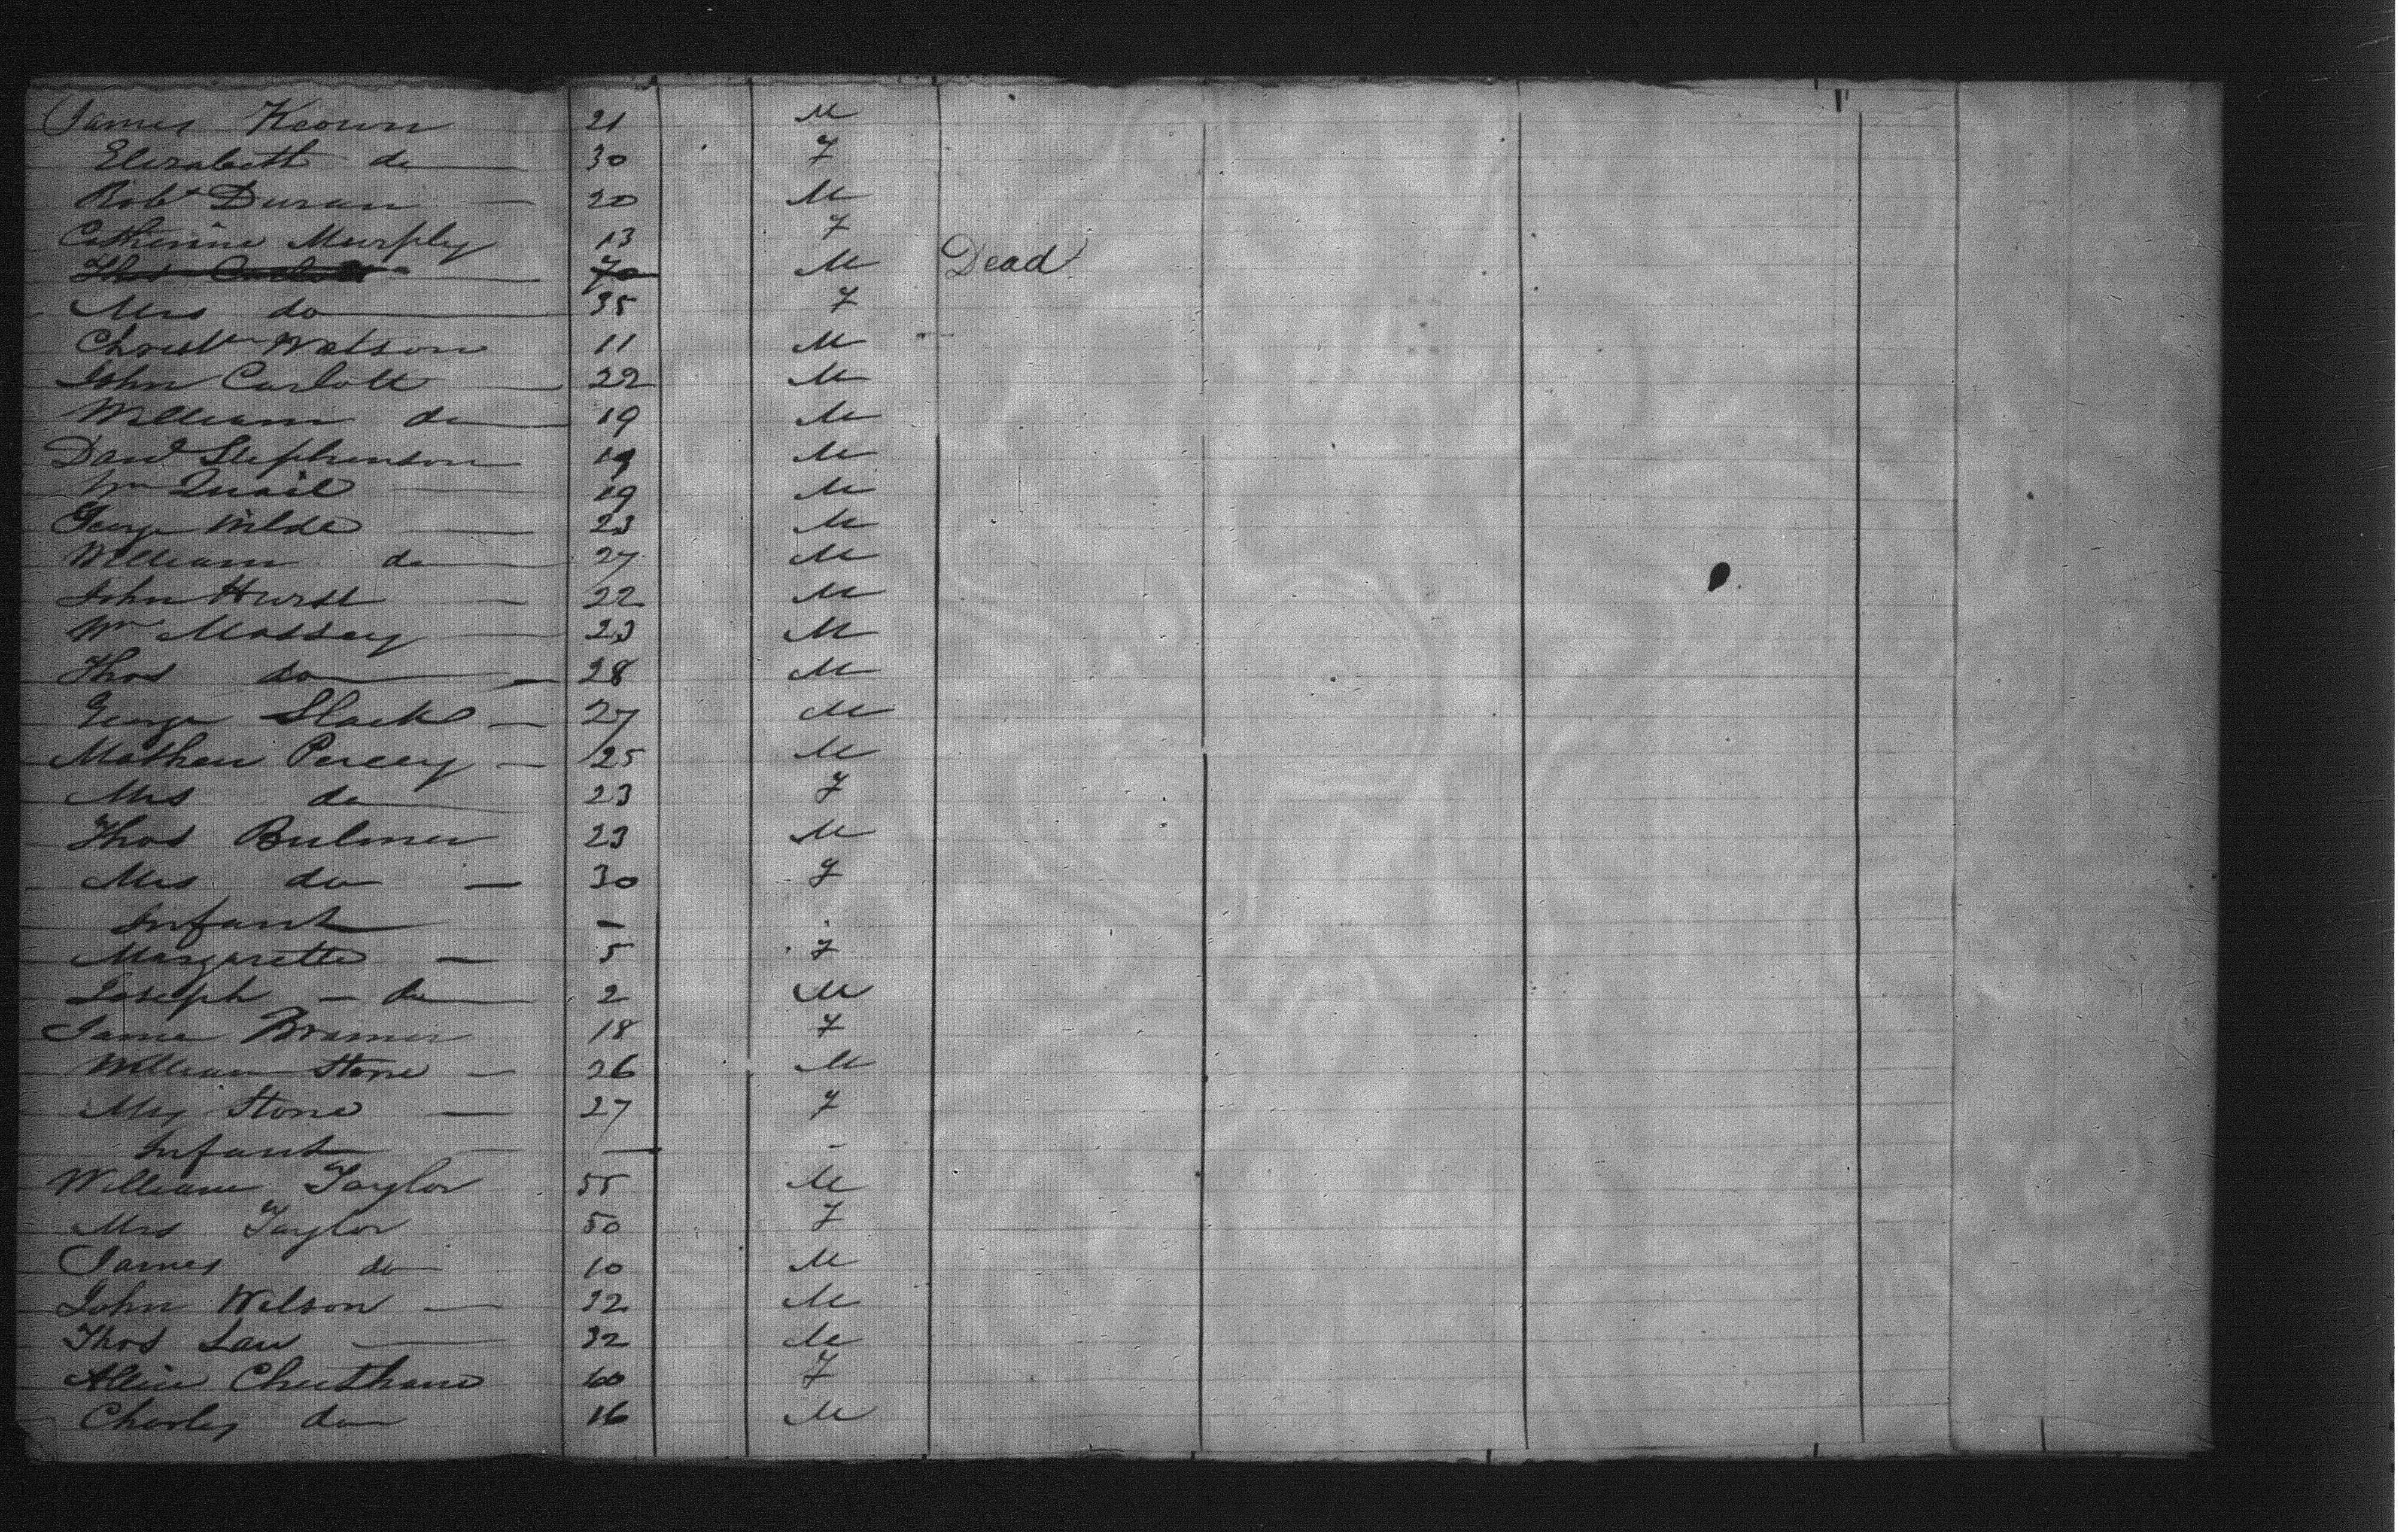 James Keown 21 M
Elizabeth do 30 F
Robt Duran 20 M
Catherine Murphy 13 F
Thos Carlott 70 M Dead
Mrs do 35 F
Christr Watson 11 M
John Carlott 22 M
William do 19 M
Davd Stephenson 19 M
Wm Quail 19 M
George Wilde 23 M
William do 27 M
John Hurst 22 M
Wm Massey 23 M
Thos do 28 M
George Slack 27 M
Mathew Percey 25 M
Mrs do 23 F
Thos Bulmer 23 M
Mrs do 30 F
Infant -
Margarette 5 F
Joseph - do 2 M
Jame 18 F
William Stone 26 M
Mrs Stone 27 F
Infant - -
William Taylor 55 M
Mrs Taylor 50 F
James do 10 M
John Wilson 32 M
Thos Law 32 M
Allice Cheetham 60 F
Charles do 16 M